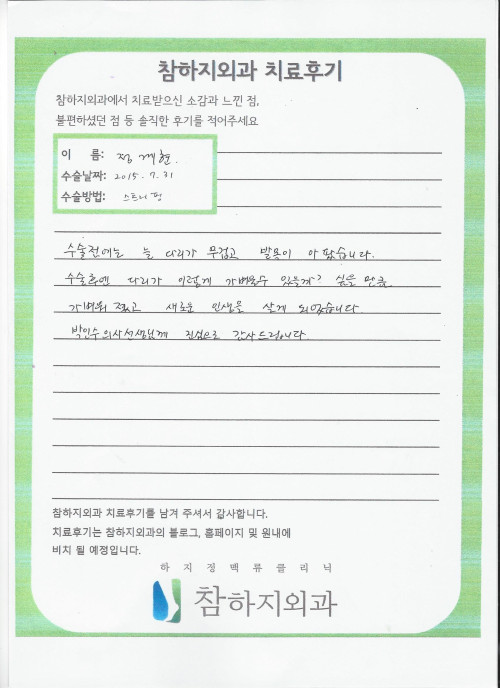 참하지외과 치료후기
참하지외과에서 치료받으신 소감과 느낀 점,
불편하셨던 점 등 솔직한 후기를 적어주세요
이 름: 정계현.
수술날짜: 2015. 7. 31
수술방법: 스트리핑
수술전에는 늘 다리가 무겁고 발목이 아팠습니다.
수술후엔 다리가 이렇게 가벼울수 있을까? 싶을 만큼
가벼워 졌고 새로운 인생을 살게 되었습니다
박인수의사선생님께 진심으로 감사드립니다.
참하지외과 치료후기를 남겨 주셔서 감사합니다.
치료후기는 참하지외과의 블로그, 홈페이지 및 원내에
비치 될 예정입니다.
하지정맥류클리닉
참하지외과